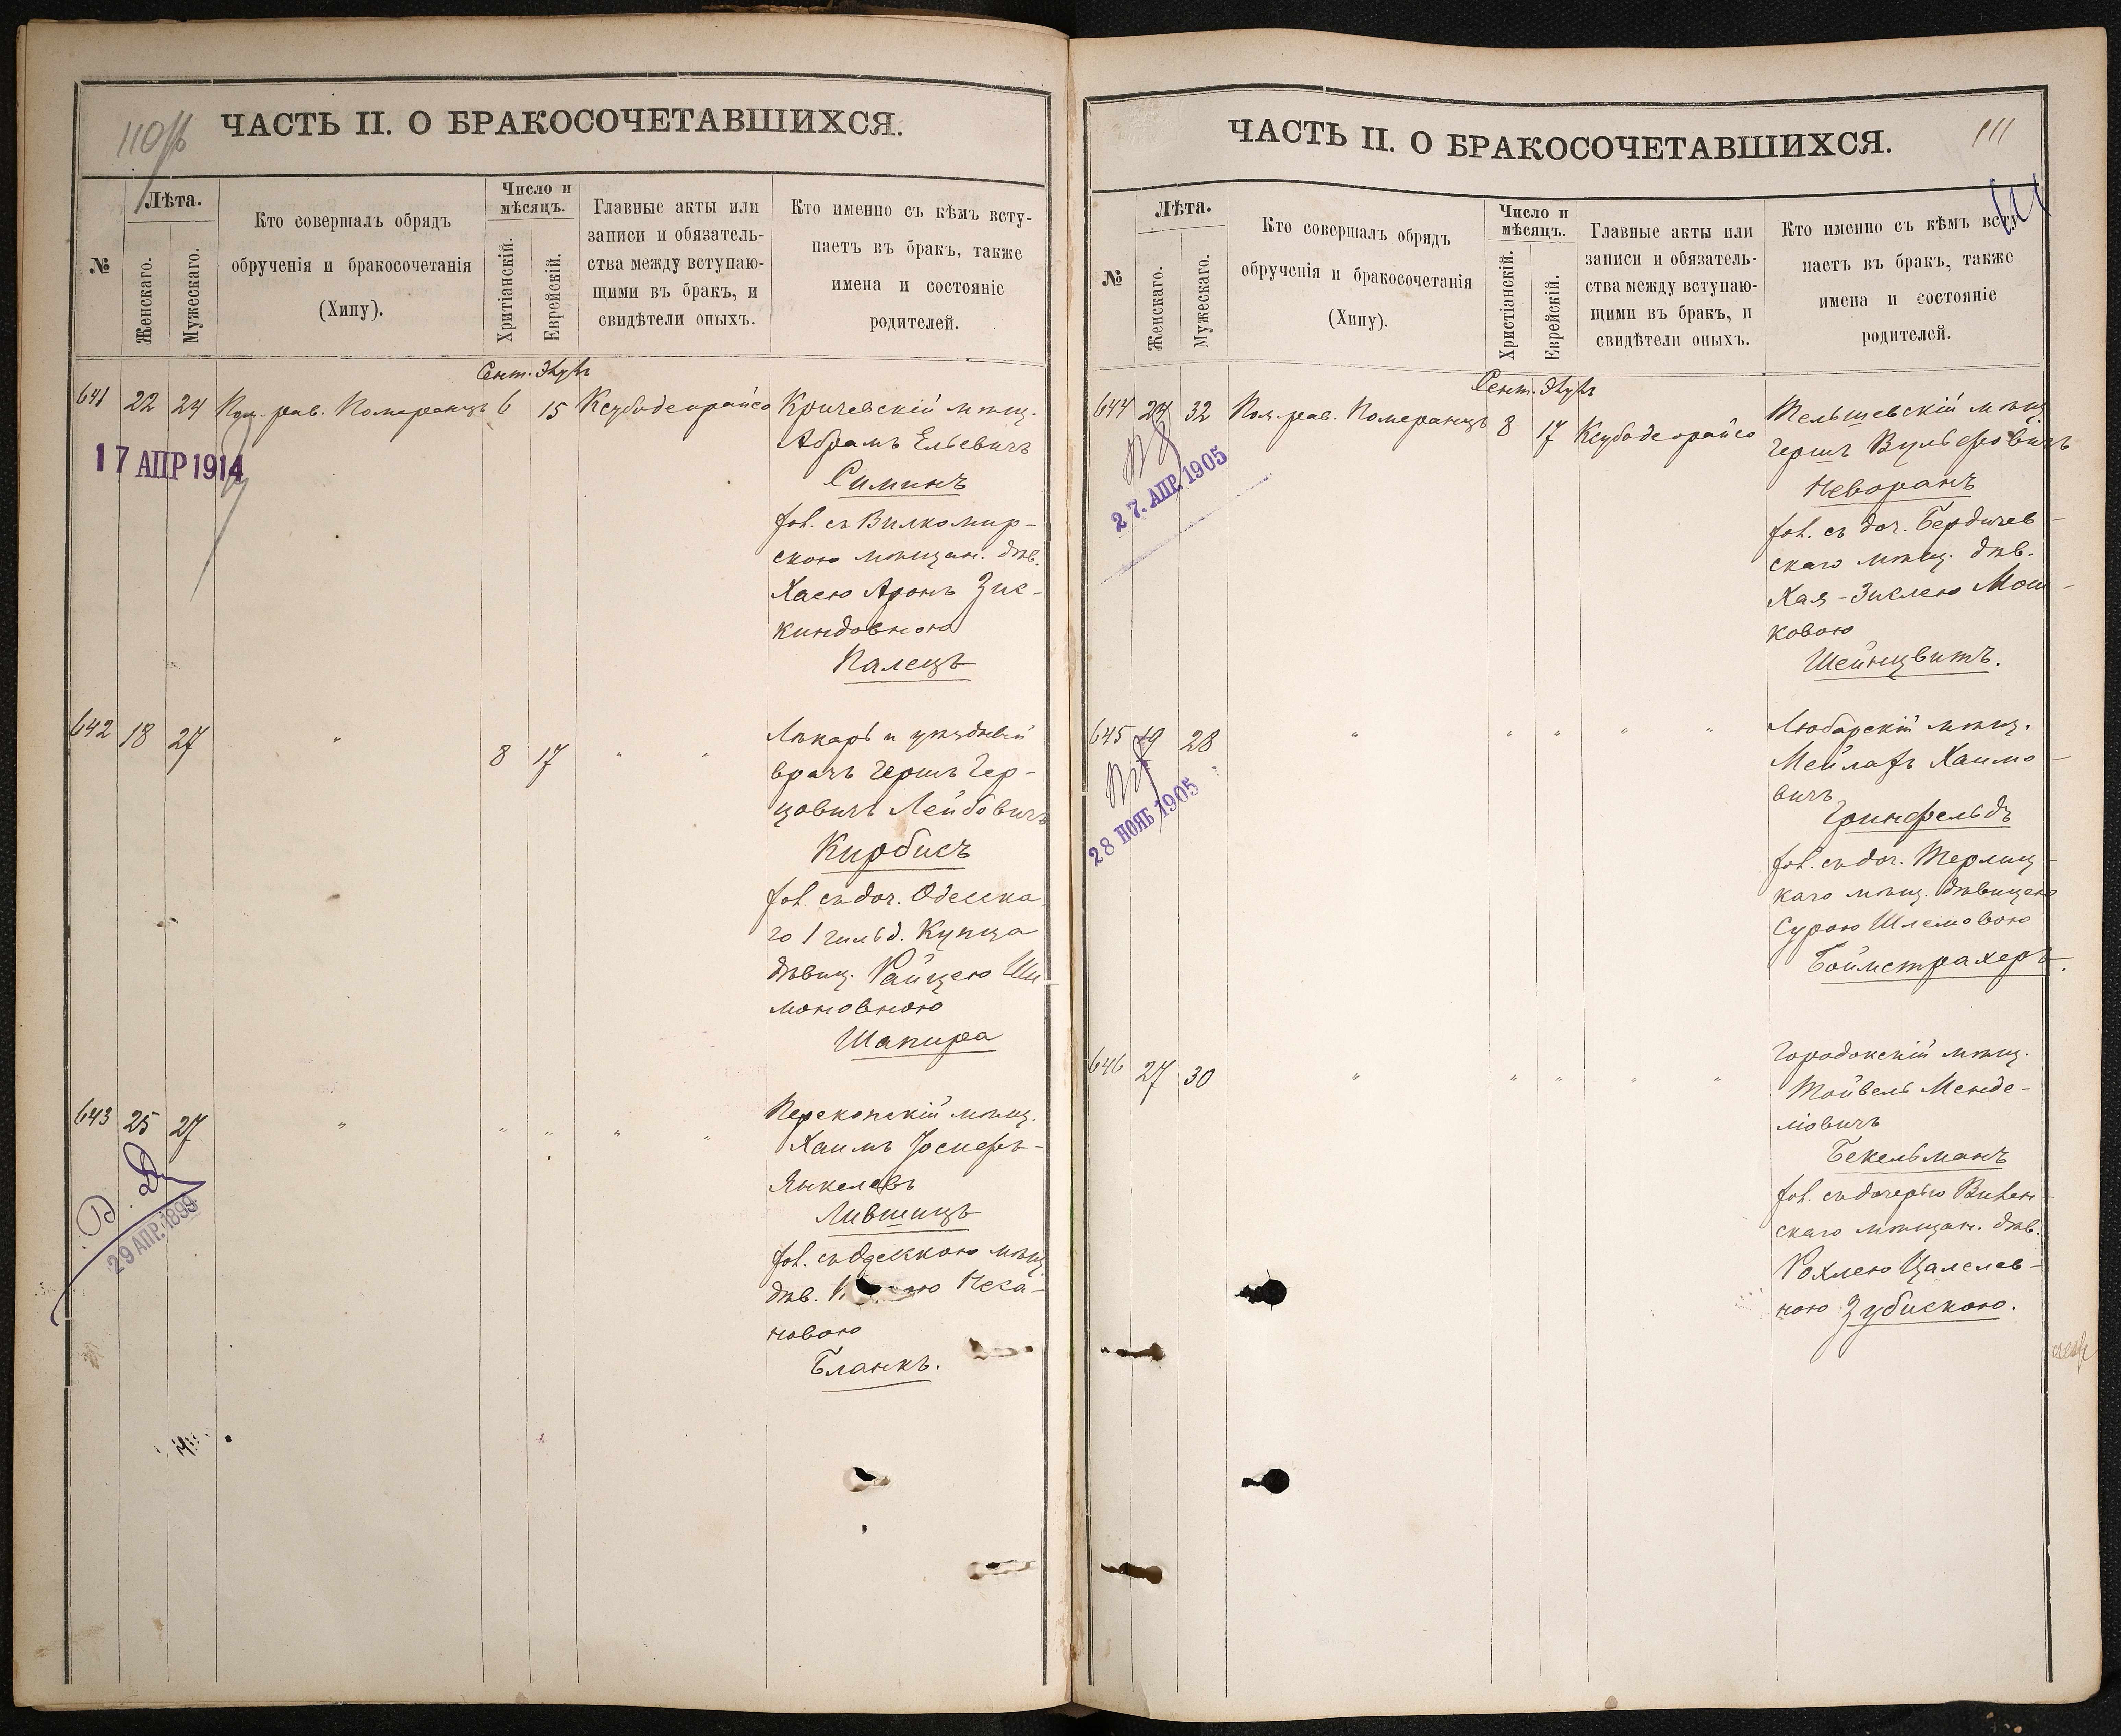 110
ЧАСТЬ II. О БРАКОСОЧЕТАВШИХСЯ.
№
Лѣта.
Женскаго.
Мужескаго.
Кто совершалъ обрядъ
обрученія и бракосочетанія
(Хипу).
Число и
мѣсяцъ.
Хритіанскій.
Еврейскій.
Главные акты или
записи и обязатель-
ства между вступаю-
щими въ бракъ, и
свидѣтели оныхъ.
Кто именно съ кѣмъ всту-
паетъ въ бракъ, также
имена и состояніе
родителей.
Сент.
641 22 24 Пом. рав. Померанцъ 6 15 Ксубодеорайсо Кричевскій мѣщ.
17 АПР 1914
Абрамъ Ельевичъ
Симинъ
съ Вилкомир-
скою мѣщан. дѣв.
Хасею Аронъ Зис-
киндовною
Палецъ
642 18 27 " 8 17 " " Лѣкарь и уѣздный
врачъ Гершъ Гер-
цовичъ Лейбовичъ
Кирбисъ
съ доч. Одесска
го 1 гильд. Купца
дѣвиц. Райцею Ши
моновною
Шапира
643 25 27 " " " " " Перекопскій мѣщ.
29 АПР. 1899
Хаимъ Іосифъ-
Янкелевъ
Лившицъ
съ Одесскою мѣщ.
дѣв. Неха-
новою
Бланкъ.
ЧАСТЬ II. О БРАКОСОЧЕТАВШИХСЯ.
111
111
№
Лѣта.
Женскаго.
Мужескаго.
Кто совершалъ обрядъ
обрученія и бракосочетанія
(Хипу).
Число и
мѣсяцъ.
Христіанскій.
Еврейскій.
Главные акты или
записи и обязатель-
ства между вступаю-
щими въ бракъ, и
свидѣтели оныхъ.
Кто именно съ кѣмъ всту-
паетъ въ бракъ, также
имена и состояніе
родителей.
Сент.
644 24 32 Пом. рав. Померанцъ 8 17 Ксубодеорайсо Тельшевскій мѣщ.
27. АПР. 1905
Гершъ Вульфовичъ
Неворанъ
съ доч. Бердичев-
скаго мѣщ. дѣв.
Хая-Зислею Мош-
ковою
Шейнцвитъ.
645 19 28 " " " " " Любарскій мѣщ.
28 НОЯБ 1905
Мейлахъ Хаимо-
вичъ
Гринфельдъ
съ доч. Терлиц-
каго мѣщ. дѣвицею
Сурою Шлемовою
Боймстрахеръ.
646 27 30 " " " " " Городокскій мѣщ.
Тойвель Менде-
ліовичъ
Бекельманъ
съ дочерью Вилен-
скаго мѣщан. дѣв.
Рохлею Цалелев-
ною Зубискою.